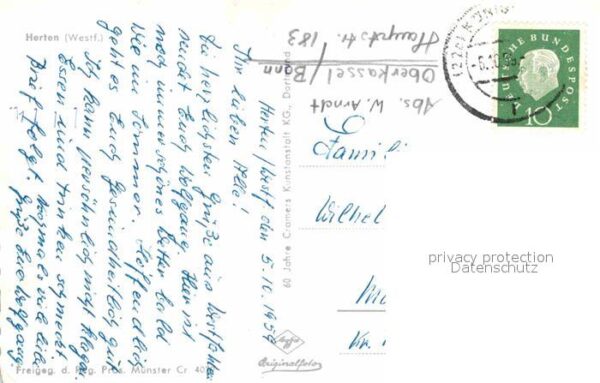 Herten (Westf.)
Herten/Westf. den 5.10.1959
Ihr lieben Alle!
Die herzlichsten Grüße aus Westfalen
sendet Euch Wolfgang. Hier ist
noch immer schönes Wetter bald
wie im Sommer. Hoffentlich
geht es Euch gesundheitlich gut
Ich kann persönlich nicht klagen.
Essen und trinken schmeckt
Brief folgt. Nochmals viele liebe
Grüße Euer Wolfgang
Freigeg. d. Reg. Präs. Münster Cr 40
60 Jahre Cramers Kunstanstalt KG., Dortmund
Agfa
Originalfoto
Abs. W. Arndt
Oberkassel/Bonn
Hauptstr. 183
Famili
Wilhel
DEUTSCHE BUNDESPOST
10
privacy protection
Datenschutz